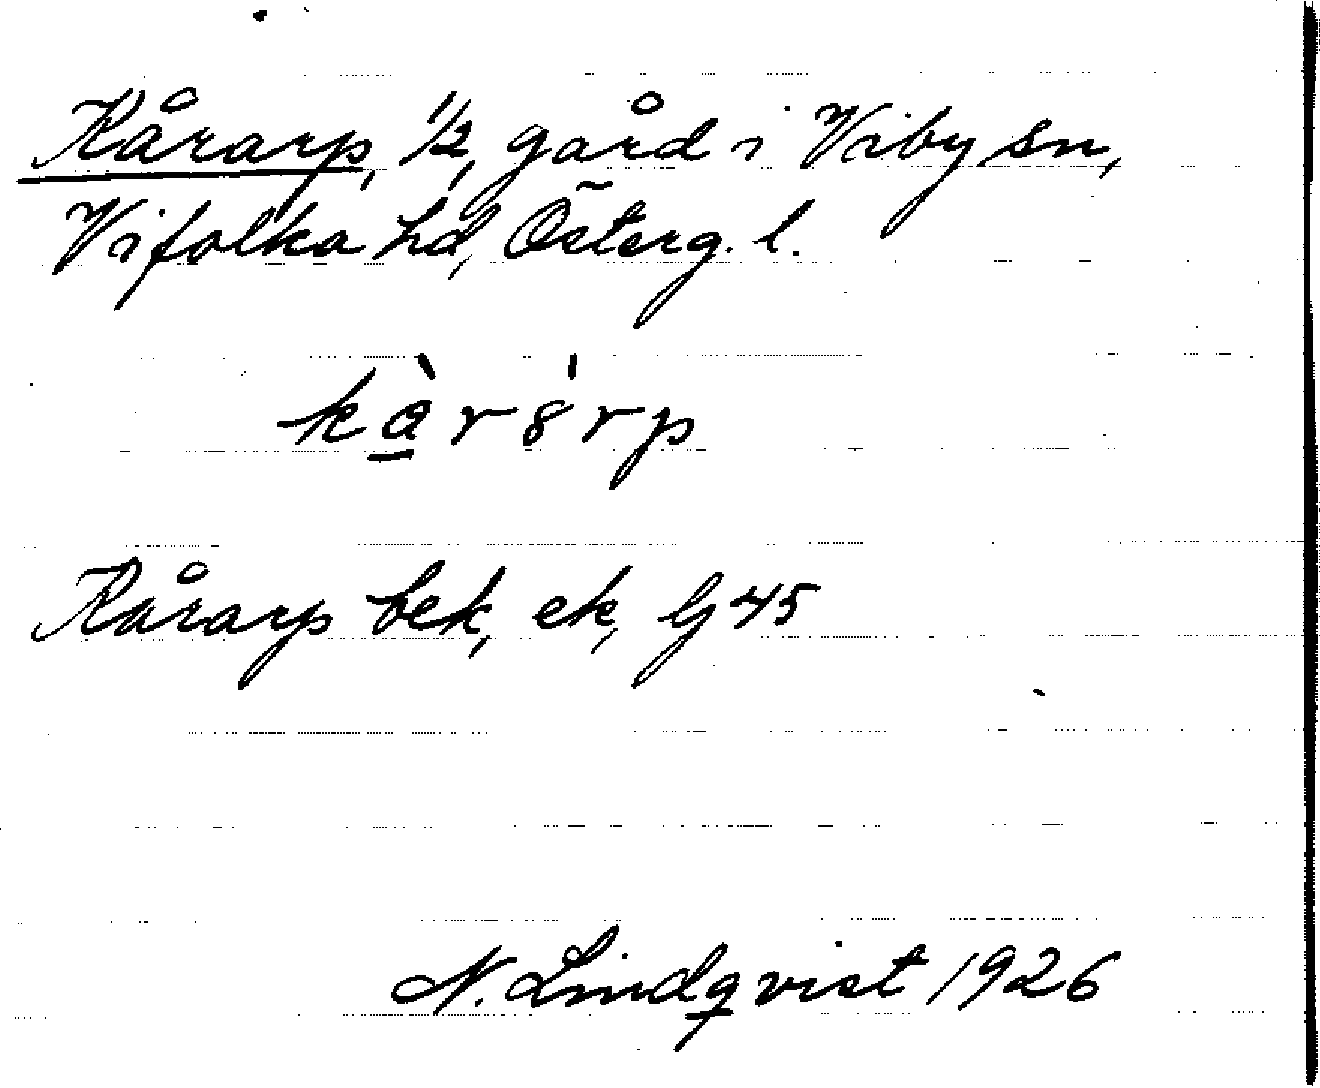 Kårarp, 1/2, gård i Viby sn,
Vifolka hd, Österg. l.
kàr8́rp
Kårarp bek, ek, G 45
N. Lindqvist 1926